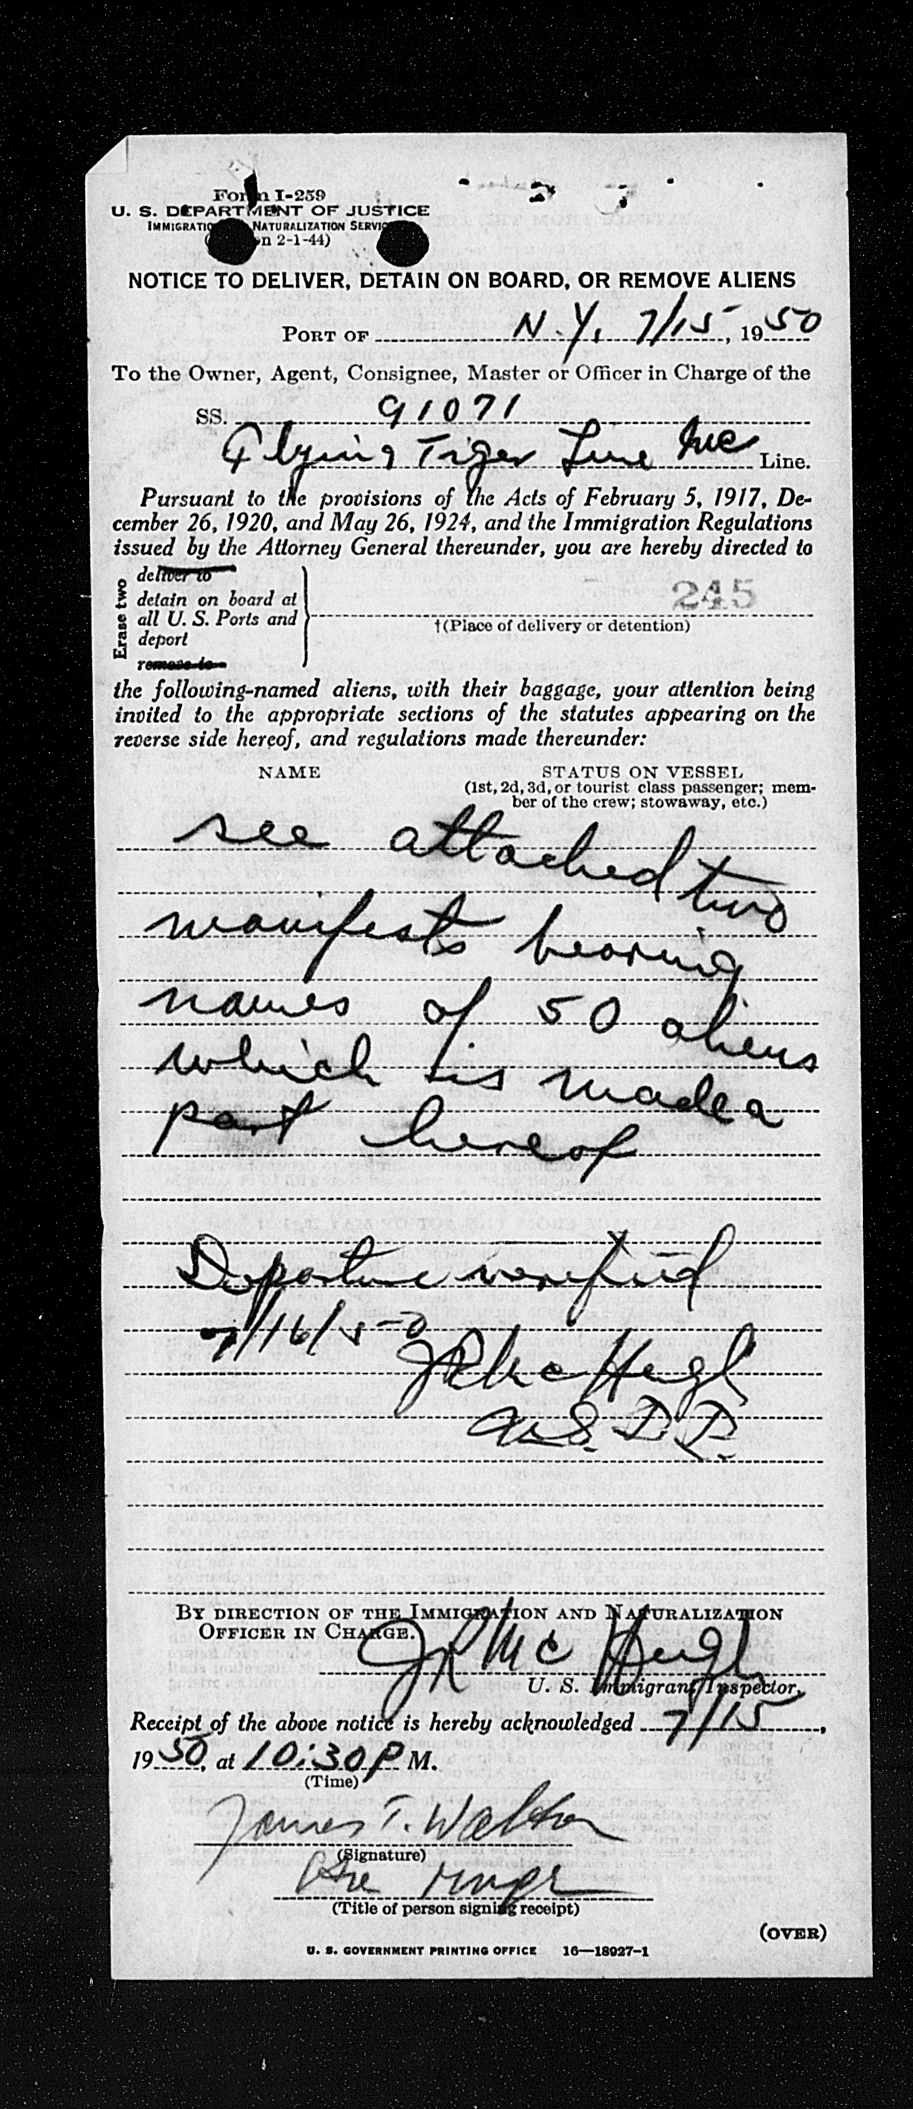 Form I-259
U. S. DEPARTMENT OF JUSTICE
IMMIGRATION NATURALIZATION SERVICE
n 2-1-44)
NOTICE TO DELIVER, DETAIN ON BOARD, OR REMOVE ALIENS
PORT OF N.Y. 7/15, 1950
To the Owner, Agent, Consignee, Master or Officer in Charge of the
SS. 91071
Flying Tiger Line Inc Line.
Pursuant to the provisions of the Acts of February 5, 1917, De-
cember 26, 1920, and May 26, 1924, and the Immigration Regulations
issued by the Attorney General thereunder, you are hereby directed to
Erase two
deliver to
detain on board at
all U. S. Ports and
deport
remove to
245
†(Place of delivery or detention)
the following-named aliens, with their baggage, your attention being
invited to the appropriate sections of the statutes appearing on the
reverse side hereof, and regulations made thereunder:
NAME STATUS ON VESSEL
(1st, 2d, 3d, or tourist class passenger; mem-
ber of the crew; stowaway, etc.)
see attached two
manifests bearing
names of 50 aliens
which is made a
part hereof
Departure verified
7/16/50
JR McHugh
BY DIRECTION OF THE IMMIGRATION AND NATURALIZATION
OFFICER IN CHARGE.
JR McHugh
U. S. Immigrant Inspector.
Receipt of the above notice is hereby acknowledged 7/15,
1950, at 10:30 P M.
(Time)
James T. Walton
(Signature)
(Title of person signing receipt)
(OVER)
U. S. GOVERNMENT PRINTING OFFICE 16—18927-1